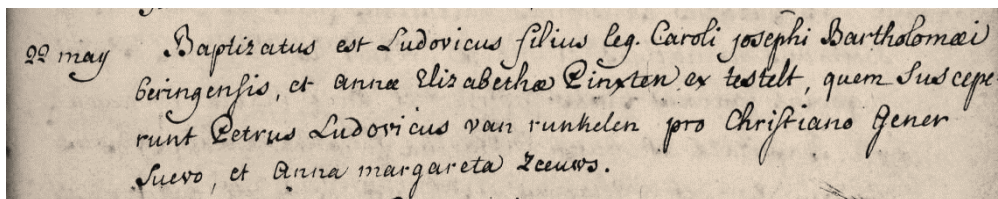 22 may Baptizatus est Ludovicus filius leg. Caroli josephi Bartholomæi
beringensis, et Annæ Elizabethæ Pinxten ex testelt, quem suscepe-
runt Petrus Ludovicus van runkelen pro Christiano Gener
Suevo, et Anna margareta Zeeuws.